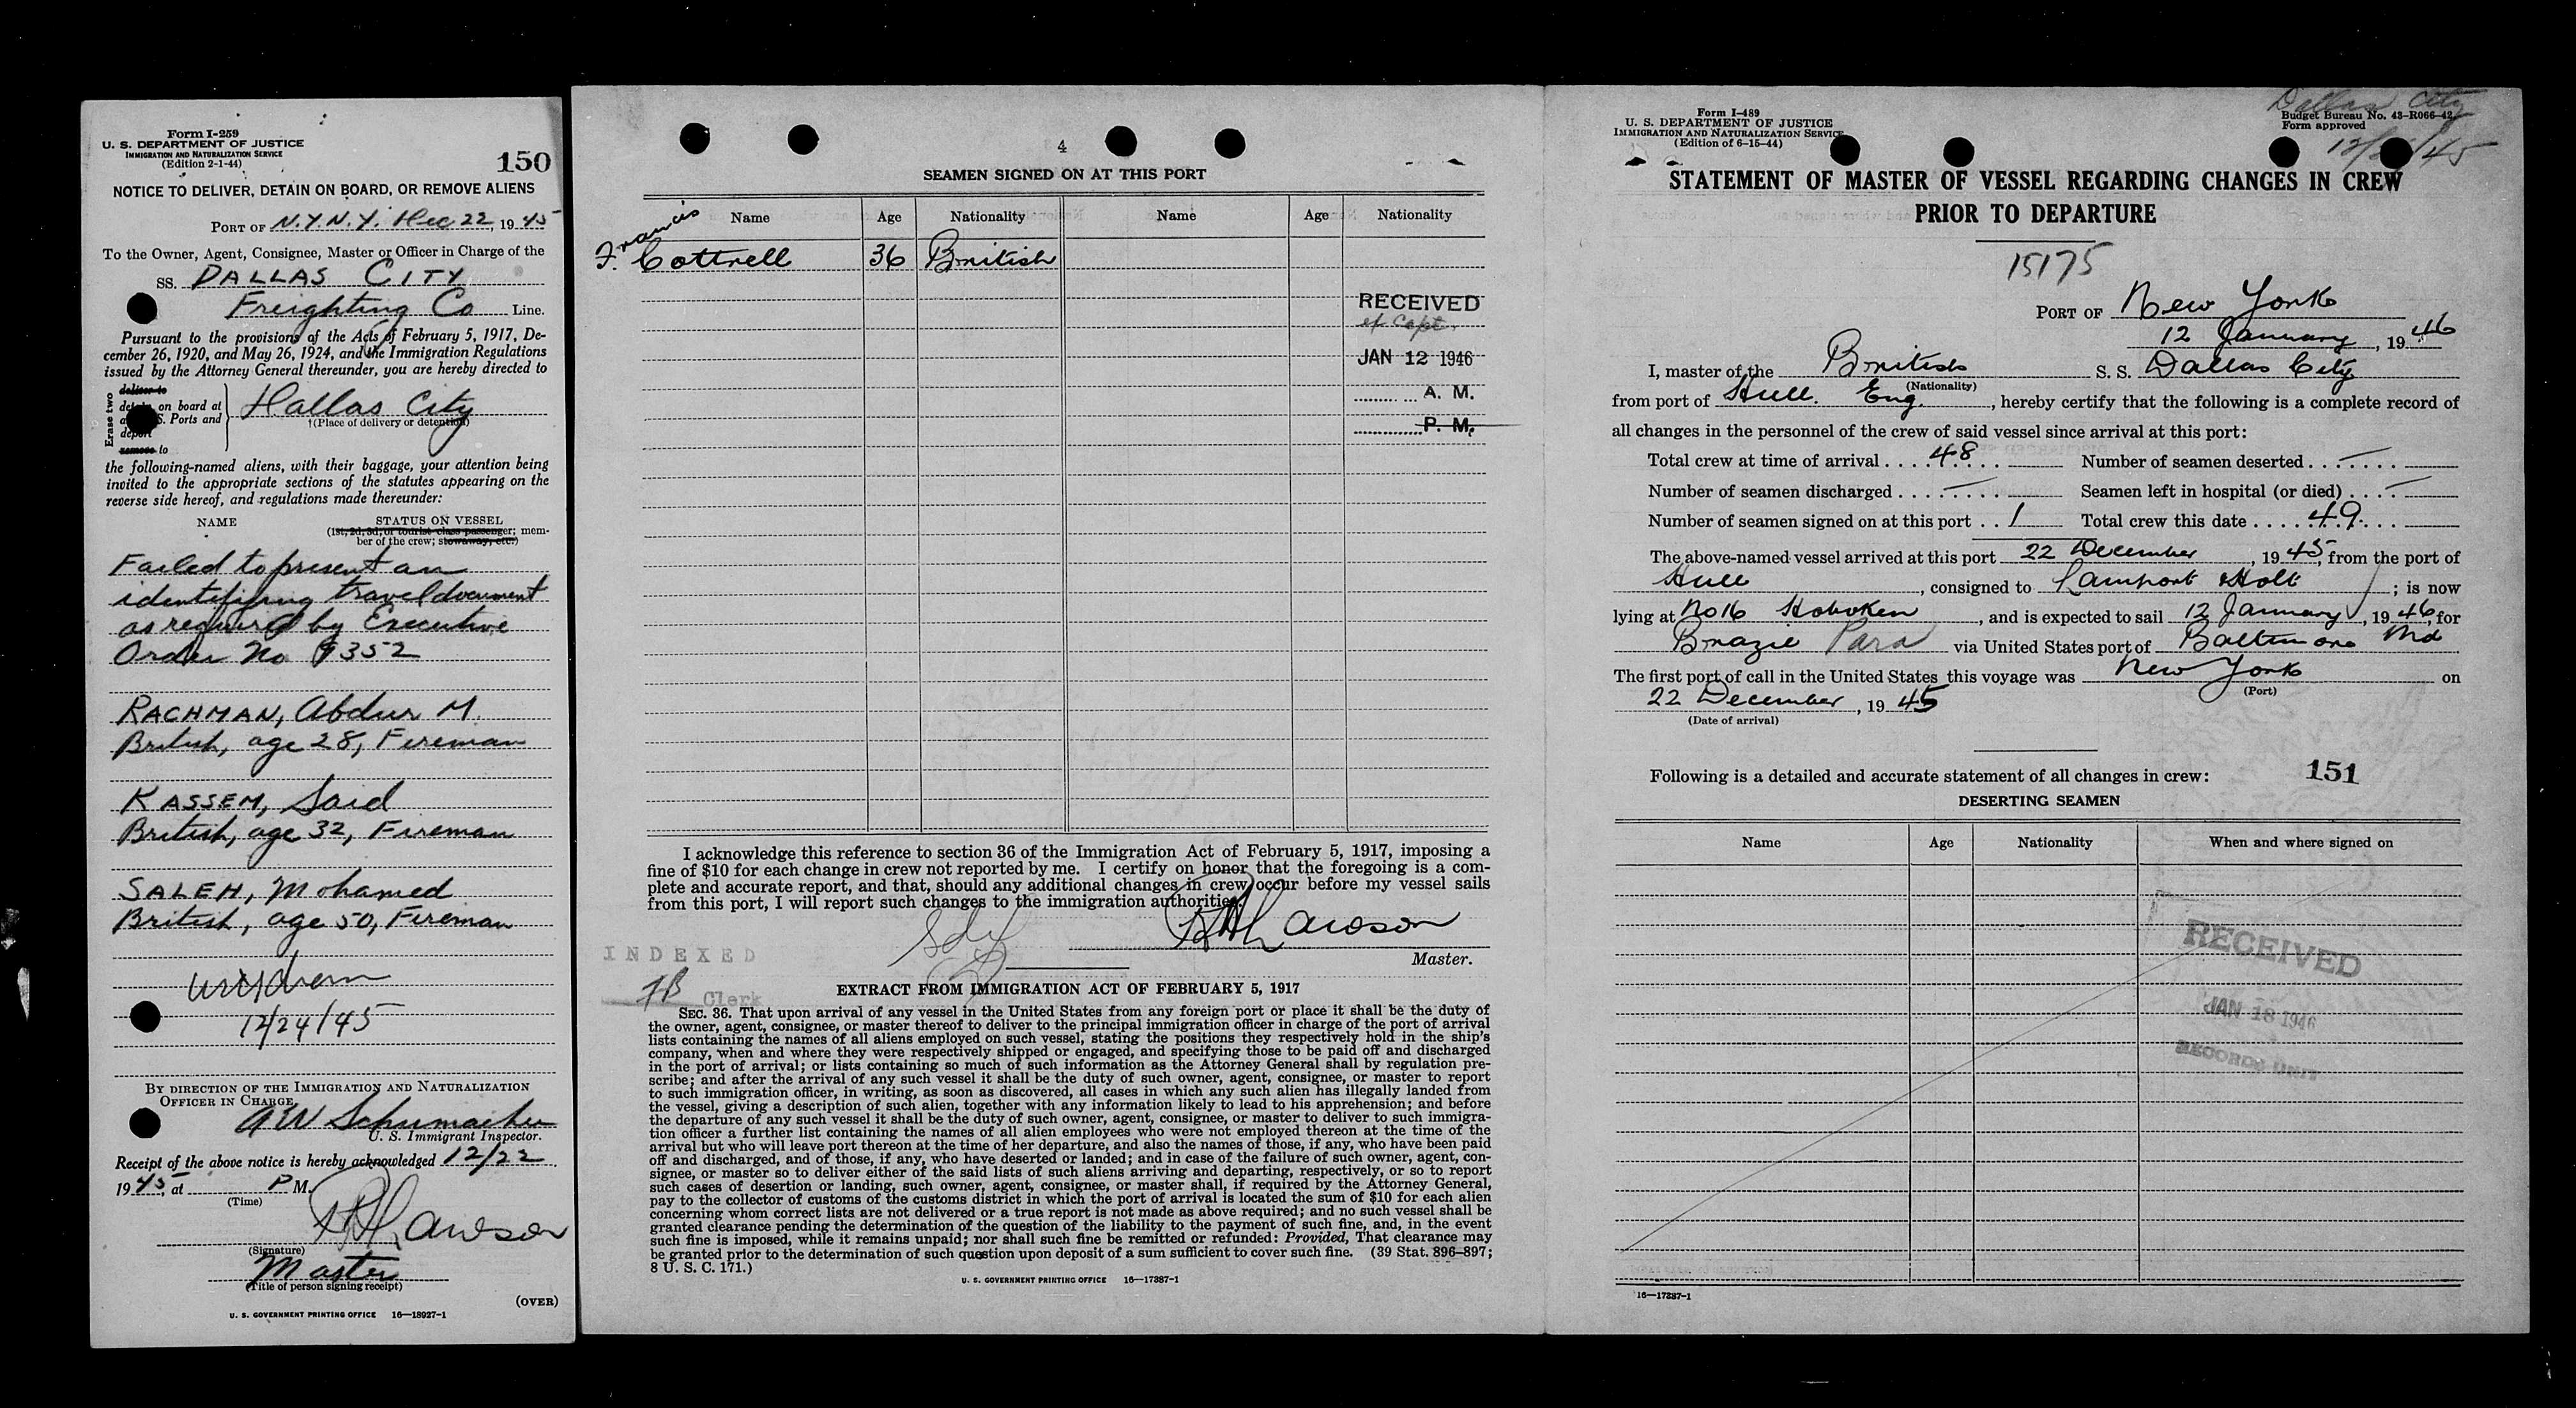 Form I-259
U. S. DEPARTMENT OF JUSTICE
IMMIGRATION AND NATURALIZATION SERVICE
(Edition 2-1-44)
150
NOTICE TO DELIVER, DETAIN ON BOARD, OR REMOVE ALIENS
PORT OF N.Y. N.Y. Dec 22, 1945
To the Owner, Agent, Consignee, Master or Officer in Charge of the
SS. DALLAS CITY
Freighting Co Line.
Pursuant to the provisions of the Acts of February 5, 1917, De-
cember 26, 1920, and May 26, 1924, and the Immigration Regulations
issued by the Attorney General thereunder, you are hereby directed to
Erase two
deliver to
on board at
S. Ports and
deport
remove to
Dallas City
†(Place of delivery or detention)
the following-named aliens, with their baggage, your attention being
invited to the appropriate sections of the statutes appearing on the
reverse side hereof, and regulations made thereunder:
NAME STATUS ON VESSEL
(1st, 2d, 3d, or tourist class passenger; mem-
ber of the crew; stowaway, etc.)
Failed to present an
identifying travel document
as required by Executive
Order No 9352
RACHMAN, Abdur M.
British, age 28, Fireman
KASSEM, Said
British, age 32, Fireman
SALEH, Mohamed
British, age 50, Fireman
12/24/45
BY DIRECTION OF THE IMMIGRATION AND NATURALIZATION
OFFICER IN CHARGE,
A W Schumacher
U. S. Immigrant Inspector.
Receipt of the above notice is hereby acknowledged 12/22,
1945, at P M.
(Time)
Lawson
(Signature)
Master
(Title of person signing receipt)
(OVER)
U. S. GOVERNMENT PRINTING OFFICE 16—18927-1
4
SEAMEN SIGNED ON AT THIS PORT
Name Age Nationality Name Age Nationality
Francis
F. Cottrell 36 British
RECEIVED
JAN 12 1946
A. M.
P. M.
I acknowledge this reference to section 36 of the Immigration Act of February 5, 1917, imposing a
fine of $10 for each change in crew not reported by me. I certify on honor that the foregoing is a com-
plete and accurate report, and that, should any additional changes in crew occur before my vessel sails
from this port, I will report such changes to the immigration authorities.
Lawson
Master.
INDEXED
Clerk
EXTRACT FROM IMMIGRATION ACT OF FEBRUARY 5, 1917
SEC. 36. That upon arrival of any vessel in the United States from any foreign port or place it shall be the duty of
the owner, agent, consignee, or master thereof to deliver to the principal immigration officer in charge of the port of arrival
lists containing the names of all aliens employed on such vessel, stating the positions they respectively hold in the ship's
company, when and where they were respectively shipped or engaged, and specifying those to be paid off and discharged
in the port of arrival; or lists containing so much of such information as the Attorney General shall by regulation pre-
scribe; and after the arrival of any such vessel it shall be the duty of such owner, agent, consignee, or master to report
to such immigration officer, in writing, as soon as discovered, all cases in which any such alien has illegally landed from
the vessel, giving a description of such alien, together with any information likely to lead to his apprehension; and before
the departure of any such vessel it shall be the duty of such owner, agent, consignee, or master to deliver to such immigra-
tion officer a further list containing the names of all alien employees who were not employed thereon at the time of the
arrival but who will leave port thereon at the time of her departure, and also the names of those, if any, who have been paid
off and discharged, and of those, if any, who have deserted or landed; and in case of the failure of such owner, agent, con-
signee, or master so to deliver either of the said lists of such aliens arriving and departing, respectively, or so to report
such cases of desertion or landing, such owner, agent, consignee, or master shall, if required by the Attorney General,
pay to the collector of customs of the customs district in which the port of arrival is located the sum of $10 for each alien
concerning whom correct lists are not delivered or a true report is not made as above required; and no such vessel shall be
granted clearance pending the determination of the question of the liability to the payment of such fine, and, in the event
such fine is imposed, while it remains unpaid; nor shall such fine be remitted or refunded: Provided, That clearance may
be granted prior to the determination of such question upon deposit of a sum sufficient to cover such fine. (39 Stat. 896–897;
8 U. S. C. 171.)
U. S. GOVERNMENT PRINTING OFFICE 16—17387-1
Form I-489
U. S. DEPARTMENT OF JUSTICE
IMMIGRATION AND NATURALIZATION SERVICE
(Edition of 6-15-44)
Dallas City
Budget Bureau No. 43-R066-42
Form approved
STATEMENT OF MASTER OF VESSEL REGARDING CHANGES IN CREW
PRIOR TO DEPARTURE
15175
PORT OF New York
12 January, 1946
I, master of the British S. S. Dallas City
(Nationality)
from port of Hull. Eng., hereby certify that the following is a complete record of
all changes in the personnel of the crew of said vessel since arrival at this port:
Total crew at time of arrival 48 Number of seamen deserted —
Number of seamen discharged — Seamen left in hospital (or died) —
Number of seamen signed on at this port 1 Total crew this date 49.
The above-named vessel arrived at this port 22 December, 1945, from the port of
Hull, consigned to Lamport & Holt; is now
lying at No 16 Hoboken, and is expected to sail 12 January, 1946, for
Brazil Para via United States port of Baltimore Md
The first port of call in the United States this voyage was New York on
(Port)
22 December, 1945
(Date of arrival)
Following is a detailed and accurate statement of all changes in crew: 151
DESERTING SEAMEN
Name Age Nationality When and where signed on
RECEIVED
JAN 18 1946
RECORDS UNIT
16—17387-1